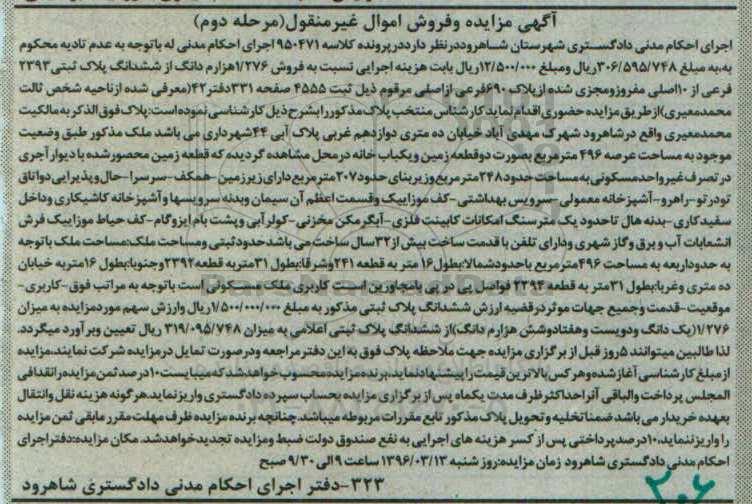 آگهی مزایده وفروش اموال غیرمنقول(مرحله دوم)
اجرای احکام مدنی دادگستری شهرستان شاهروددرنظر دارددرپرونده کلاسه ۹۵۰۴۷۱ اجرای احکام مدنی له باتوجه به عدم تادیه محکوم
به،به مبلغ ۳۰۶/۵۹۵/۷۴۸ریال ومبلغ ۱۲/۵۰۰/۰۰۰ریال بابت هزینه اجرایی نسبت به فروش ۱/۲۷۶هزارم دانگ از ششدانگ پلاک ثبتی۲۳۹۳
فرعی از ۱۰اصلی مفروزومجزی شده ازپلاک ۶۹۰فرعی ازاصلی مرقوم ذیل ثبت ۴۵۵۵ صفحه ۳۳۱دفتر۴۲(معرفی شده ازناحیه شخص ثالث
محمدمعیری)ازطریق مزایده حضوری اقدام نماید کارشناس منتخب پلاک مذکوررابشرح ذیل کارشناسی نموده است:پلاک فوق الذکر به مالکیت
محمدمعیری واقع درشاهرود شهرک مهدی آباد خیابان ده متری دوازدهم غربی پلاک آبی ۴۴شهرداری می باشد ملک مذکور طبق وضعیت
موجود به مساحت عرصه ۴۹۶ مترمربع بصورت دوقطعه زمین ویکباب خانه درمحل مشاهده گردیدکه قطعه زمین محصورشده با دیوارآجری
در تصرف غیر واحدمسکونی به مساحت حدود۲۴۸مترمربع وزیربنای حدود۲۰۷مترمربع دارای زیرزمین -همکف-سرسرا-حال وپذیرایی دواتاق
تودرتو-راهرو-آشپزخانه معمولی-سرویس بهداشتی-کف موزاییک وقسمت اعظم آن سیمان وبدنه سرویسها و آشپزخانه کاشیکاری وداخل
سفیدکاری-بدنه هال تاحدود یک مترسنگ امکانات کابینت فلزی-آبگرمکن مخزنی-کولرآبی وپشت بام ایزوگام-کف حیاط موزاییک فرش
انشعابات آب و برق وگاز شهری ودارای تلفن با قدمت ساخت بیش از۳۲سال ساخت می باشدحدودثبتی ومساحت ملک:مساحت ملک باتوجه
به حدوداربعه به مساحت ۴۹۶مترمربع باحدودشمالا:بطول۱۶ متر به قطعه ۲۴۱وشرقا:بطول ۳۱متربه قطعه۲۳۹۲وجنوبا:بطول ۱۶متربه خیابان
ده متری وغربا:بطول ۳۱متر به قطعه ۲۲۹۴ فواصل پی در پی بامجاورین است کاربری ملک مسکونی است باتوجه به مراتب فوق-کاربری-
موقعیت-قدمت وجمیع جهات موثردرقضیه ارزش ششدانگ پلاک ثبتی مذکور به مبلغ ۱/۵۰۰/۰۰۰/۰۰۰ریال وارزش سهم موردمزایده به میزان
۱/۲۷۶(یک دانگ ودویست وهفتادوشش هزارم دانگ)از ششدانگ پلاک ثبتی اعلامی به میزان ۳۱۹/۰۹۵/۷۴۸ ریال تعیین وبرآورد میگردد.
لذا طالبین میتوانند ۵روز قبل از برگزاری مزایده جهت ملاحظه پلاک فوق به این دفترمراجعه ودرصورت تمایل درمزایده شرکت نمایند،مزایده
از مبلغ کارشناسی آغاز شده وهر کس بالاترین قیمت را پیشنهادنماید،برنده مزایده محسوب خواهدشدکه میبایست۱۰درصدثمن مزایده رانقدافی
المجلس پرداخت والباقی آنراحداکثر ظرف مدت یکماه پس از برگزاری مزایده بحساب سپرده دادگستری واریزنماید.هرگونه هزینه نقل وانتقال
بعهده خریدار می باشد.ضمناتخلیه وتحویل پلاک مذکور تابع مقررات مربوطه میباشد.چنانچه برنده مزایده ظرف مهلت مقررمابقی ثمن مزایده
را واریزننماید،۱۰درصدپرداختی پس از کسر هزینه های اجرایی به نفع صندوق دولت ضبط ومزایده تجدیدخواهدشد. مکان مزایده:دفتراجرای
احکام مدنی دادگستری شاهرود زمان مزایده:روز شنبه ۱۳۹۶/۰۳/۱۳ ساعت ۹الی ۹/۳۰ صبح
۳۲۳-دفتر اجرای احکام مدنی دادگستری شاهرود
۲۰۶